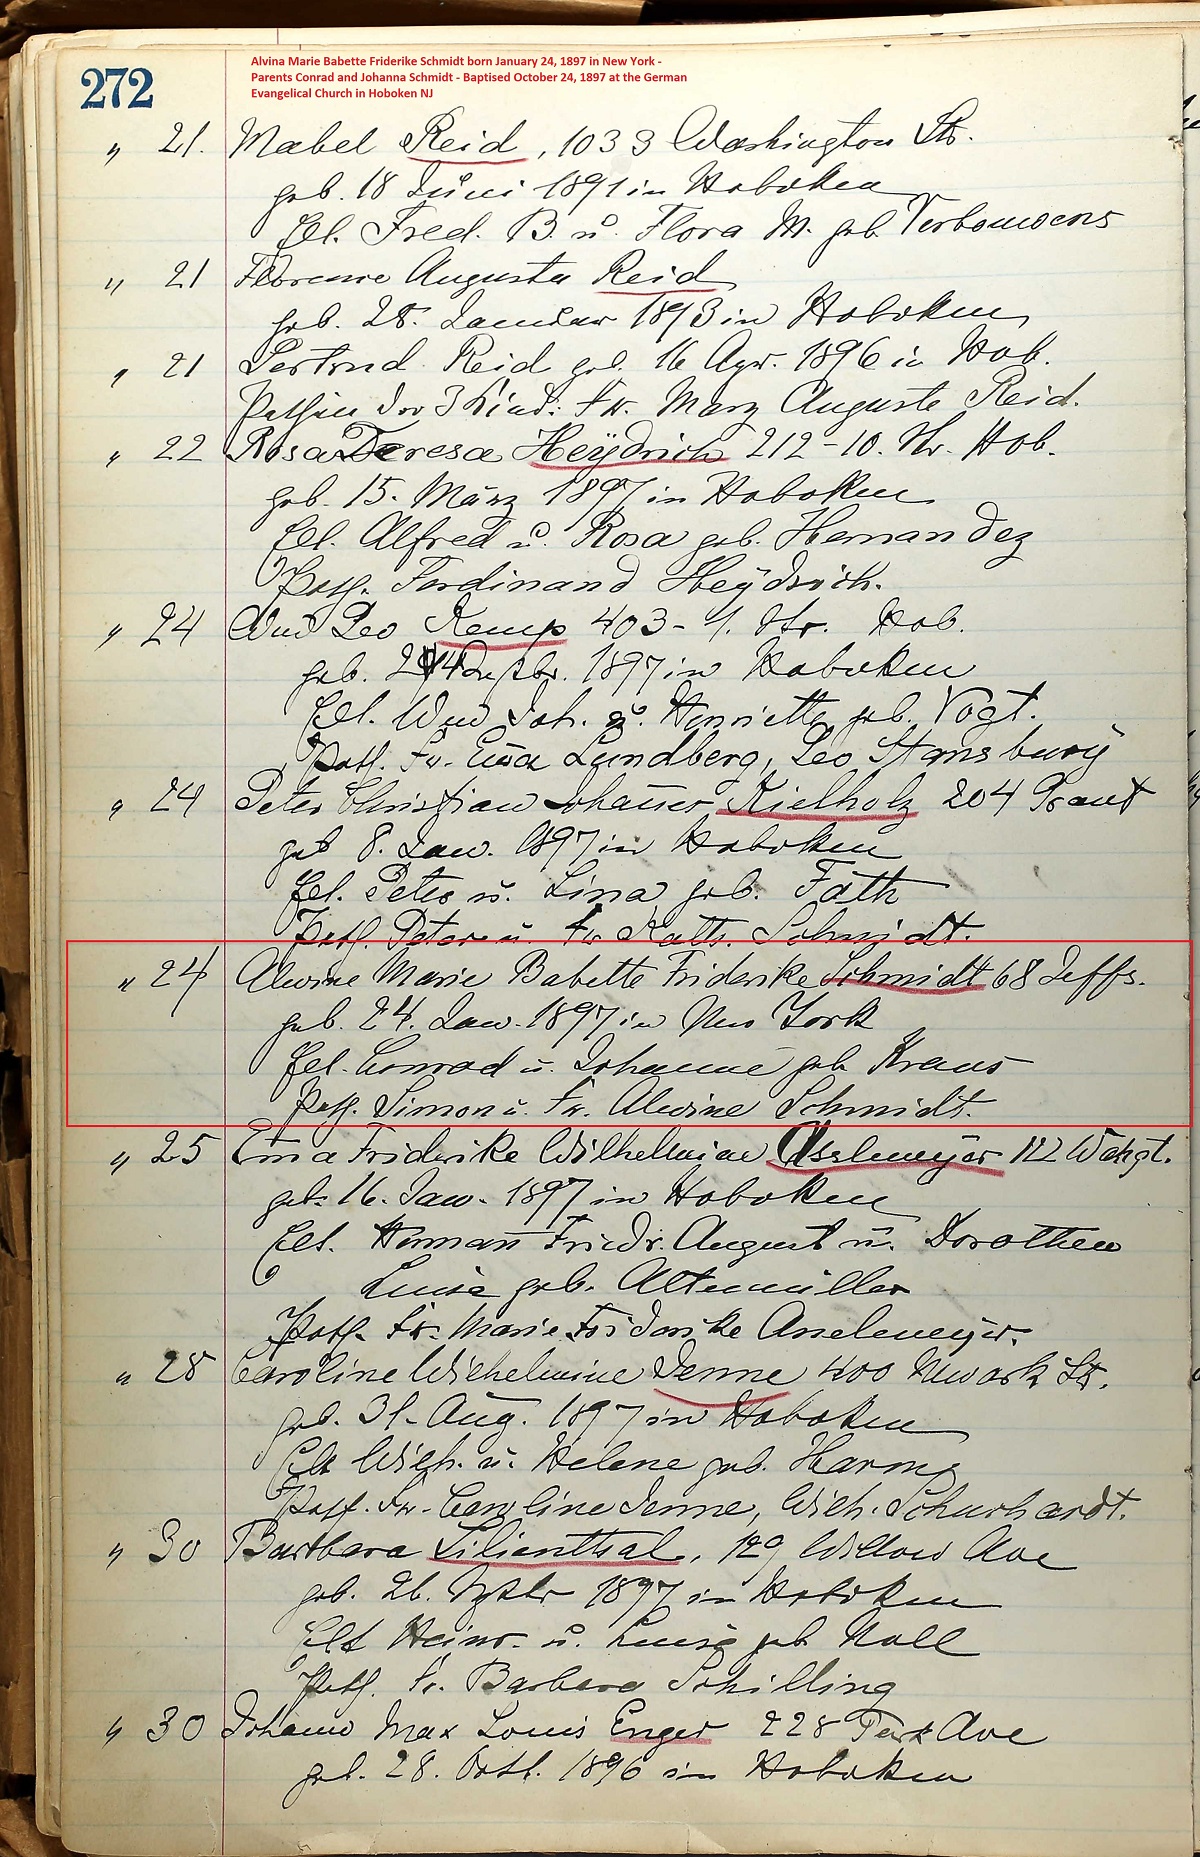 272
Alvina Marie Babette Friderike Schmidt born January 24, 1897 in New York -
Parents Conrad and Johanna Schmidt - Baptised October 24, 1897 at the German
Evangelical Church in Hoboken NJ
" 21. Mabel Reid, 1033 Washington Str.
geb. 18 Juni 1891 in Hoboken
Elt. Fred. B. u. Flora M. geb.
" 21 Florence Augusta Reid
geb. 28. Januar 1893 in Hoboken
" 21 Gertrud Reid geb. 16 Apr. 1896 in Hob.
Pathin der 3 Kind: Fr. Mary Auguste Reid.
" 22 Rosa Teresa Heÿdrich 212-10. Str. Hob.
geb. 15. März 1897 in Hoboken
Elt. Alfred u. Rosa geb. Hernandez
Path. Ferdinand Heÿdrich.
" 24 Wm Leo Kemp 403-1. Str. Hob.
geb. 1897 in Hoboken
Elt. Wm Joh. u. Henriette geb. Vogt.
Path. Fr. Emma Lundberg, Leo Stansbury
" 24 Peter Christian Johannes Kielholz 204 Grant
geb 8. Jan. 1897 in Hoboken
Elt. Peter u. Lina geb. Fäth
Path. Peter u. Fr Kath. Schmidt.
" 24 Alwine Marie Babette Friderike Schmidt 68 Jeffs.
geb. 24. Jan. 1897 in New York
Elt. Conrad u. Johanne geb Kraus
Path. Simon u. Fr. Alwine Schmidt.
" 25 Ema Friderike Wilhelmine 112 Wshgt.
geb. 16. Jan. 1897 in Hoboken
Elt. Herman Friedr. August u. Dorothea
Luise geb. Altemüller
Path. Fr. Marie Friderike
" 28 Caroline Wilhelmine Denne 400 Newark Str.
geb. 31. Aug. 1897 in Hoboken
Elt Wilh. u. Helene geb. Harms
Path. Fr. Caroline Denne, Wilh. Schuchardt.
" 30 Barbara Lilienthal, 129 Willow Ave
geb. 26. 1897 in Hoboken
Elt Heinr. u. Luise geb Noll
Path. Fr. Barbara Schilling
" 30 Johann Max Louis Enger 228 Park Ave
geb. 28. Octb. 1896 in Hoboken